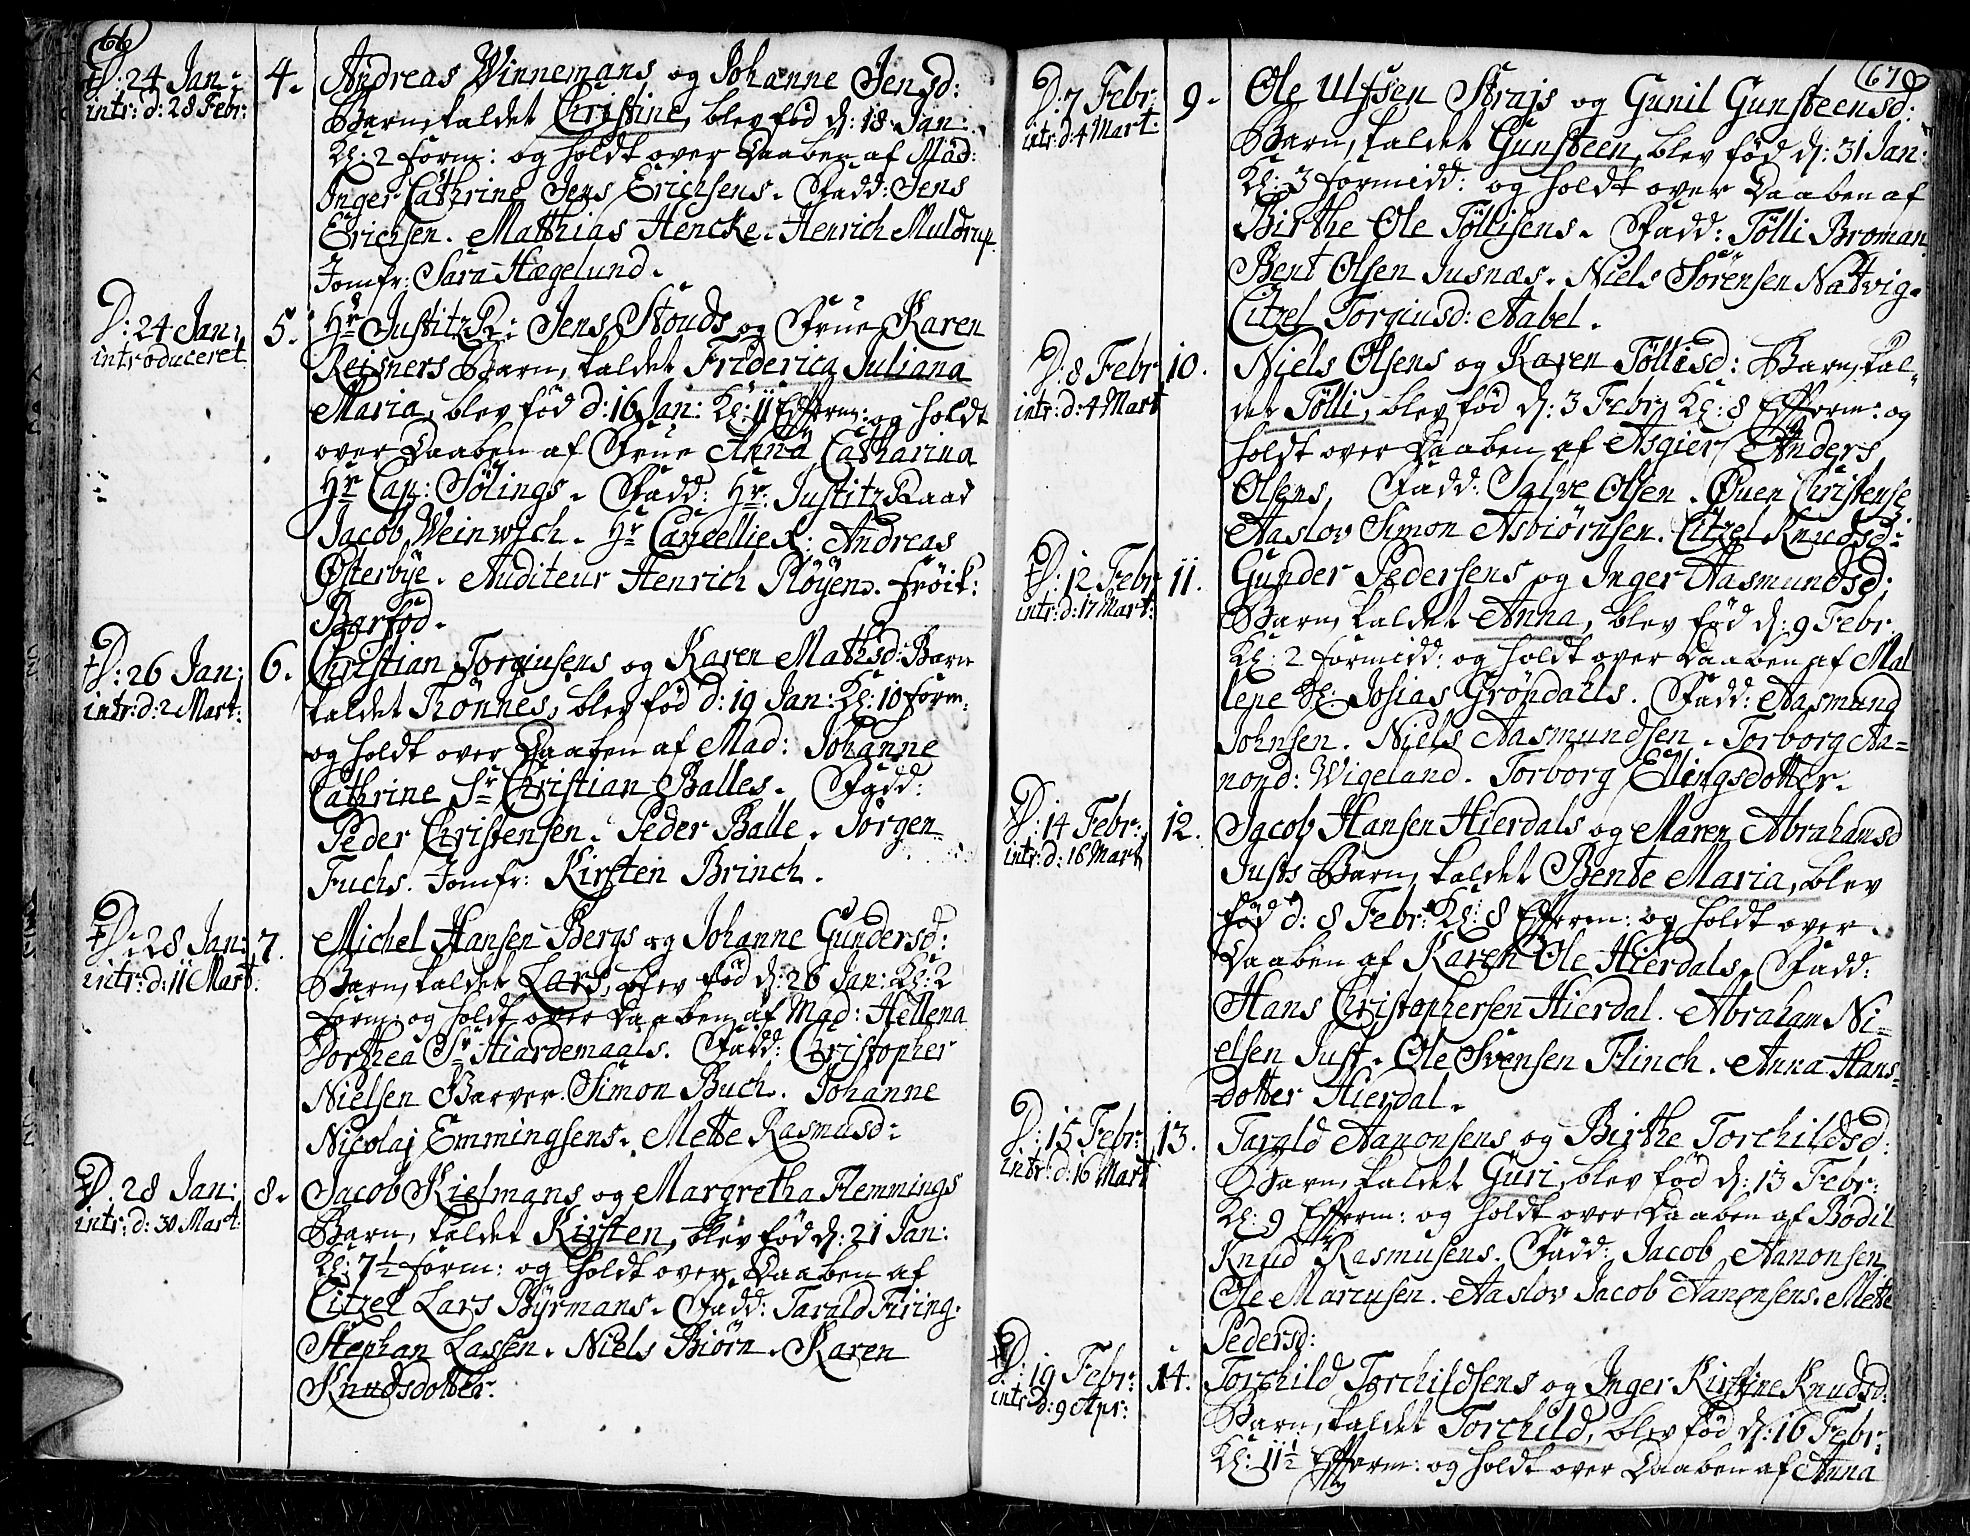 66
D: 24 Jan:
intr: d: 28 Febr:
4.
Andreas Winnemans og Johanne Jensd:
Barn, kaldet Christine, blev fød d: 18 Jan:
Kl: 2 form: og holdt over Daaben af Mad:
Inger Cathrine Jens Erichsens. Fadd: Jens
Erichsen. Matthias Hencke. Henrich Muldrup.
Jomfr: Sara Hægelund.
D: 24 Jan:
introduceret
5.
Hr JustitzR: Jens Stouds og Frue Karen
Reisners Barn, kaldet Friderica Juliana
Maria, blev fød d: 16 Jan: Kl: 11 Efterm: og holdt
over Daaben af Frue Anna Catharina
Hr Cap: Sølings. Fadd: Hr. Justitz Raad
Jacob Weinwich. Hr CancellieR: Andreas
Østerbye. Auditeur Henrich Pløyen. frøik:
Barfød.
D: 26 Jan:
intr: d: 2 Mart:
6.
Christian Torgiusens og Karen Mathisd: Barn
kaldet Thønnes, blev fød d: 19 Jan: Kl: 10 form:
og holdt over Daaben af Mad: Johanne
Cathrine Sr Christian Balles. Fadd:
Peder Christensen. Peder Balle. Jørgen
Fuchs. Jomfr: Kirsten Brinch.
D: 28 Jan:
intr: d: 11 Mart:
7.
Michel Hansen Bergs og Johanne Gundersd:
Barn, kaldet Lars, blev fød d: 26 Jan: Kl: 2
form: og holdt over Daaben af Mad: Hellena
Dorthea Sr Hiardemaals. Fadd: Christopher
Nielsen Garver. Simon Buch. Johanne
Nicolaj Emmingsens. Mette Rasmusd:
D. 28 Jan:
intr: d: 30 Mart:
8.
Jacob Kielmans og Margretha Flemmings
Barn, kaldet Kirsten, blev fød d: 21 Jan:
Kl: 7½ form: og holdt over Daaben af
Citzel Lars Byrmans. Fadd: Tarald Firing.
Stephan Lassen. Niels Biørn. Karen
Knudsdotter.
67
D: 7 Febr:
intr: d: 4 Mart:
9.
Ole Ulfsen Strajs og Gunil Gunsteensd:
Barn, kaldet Gunsteen, blev fød d: 31 Jan:
Kl: 3 formidd: og holdt over Daaben af
Birthe Ole Tøllisens. Fadd: Tølli Broman
Bent Olsen Jusnæs. Niels Sørensen Natvig.
Citzel Torgiusd: Aabel.
D: 8 Febr
intr: d: 4 Mart
10.
Niels Olsens og Karen Tøllisd: Barn, kal-
det Tølli, blev fød d: 3 Febr: Kl: 8 Efterm: og
holdt over Daaben af Asgier Anders
Olsens, Fadd: Salve Olsen. Øuen Christense
Aaslov Simon Asbiørnsen. Citzel Knudsd:
D: 12 Febr
intr: d: 17 Mart:
11.
Gunder Pedersens og Inger Aasmundsd:
Barn, kaldet Anna, blev fød d: 9 Febr
Kl: 2 formidd: og holdt over Daaben af Mal
lene Josias Grøndalls. Fadd: Aasmund
Johnsen. Niels Aasmundsen. Torborg Aa=
nond: Wigeland. Torborg Ellingsdotter.
D: 14 Febr:
intr: d: 16 Mart
12.
Jacob Hansen Hierdals og Maren Abrahamsd
Justs Barn, kaldet Bente Maria, blev
fød d: 8 Febr: Kl: 8 Efterm: og holdt over
Daaben af Karen Ole Hierdals. Fadd:
Hans Christophersen Hierdal. Abraham Ni=
elsen Just. Ole Svensen Flinch. Anna Hans=
=dotter Hierdal.
D: 15 Febr:
intr: d: 16 Mart
13.
Tarald Aanonsens og Birthe Torchildsd:
Barn, kaldet Guri, blev fød d: 13 Febr:
Kl: 9 Efterm: og holdt over Daaben af Bodil
Knud Rasmusens. Fadd: Jacob Aanonsen
Ole Marcusen. Aaslov Jacob Aanonsens. Mette
Pedersd:
D: 19 Febr:
intr: d: 9 Apr:
14.
Torchild Torchildsens og Inger Kirstine Knudsd:
Barn, kaldet Torchild, blev fød d: 16 Febr:
Kl: 11½ Efterm: og holdt over Daaben af Anna